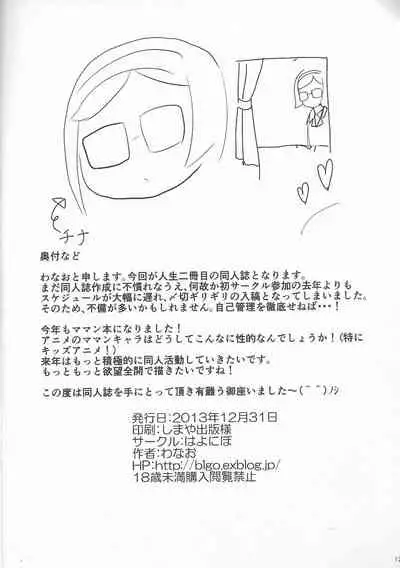 チナ
奥付など
わなおと申します。今回が人生二冊目の同人誌となります。
まだ同人誌作成に不慣れなうえ、何故か初サークル参加の去年よりも
スケジュールが大幅に遅れ、〆切ギリギリの入稿となってしまいました。
そのため、不備が多いかもしれません。自己管理を徹底せねば・・・！
今年もママン本になりました！
アニメのママンキャラはどうしてこんなに性的なんでしょうか！(特に
キッズアニメ！)
来年はもっと積極的に同人活動していきたいです。
もっともっと欲望全開で描きたいですね！
この度は同人誌を手にとって頂き有難う御座いました～(￣￣)ﾉｼ
発行日:2013年12月31日
印刷:しまや出版様
サークル:はよにぽ
作者:わなお
HP:http://blgo.exblog.jp/
18歳未満購入閲覧禁止